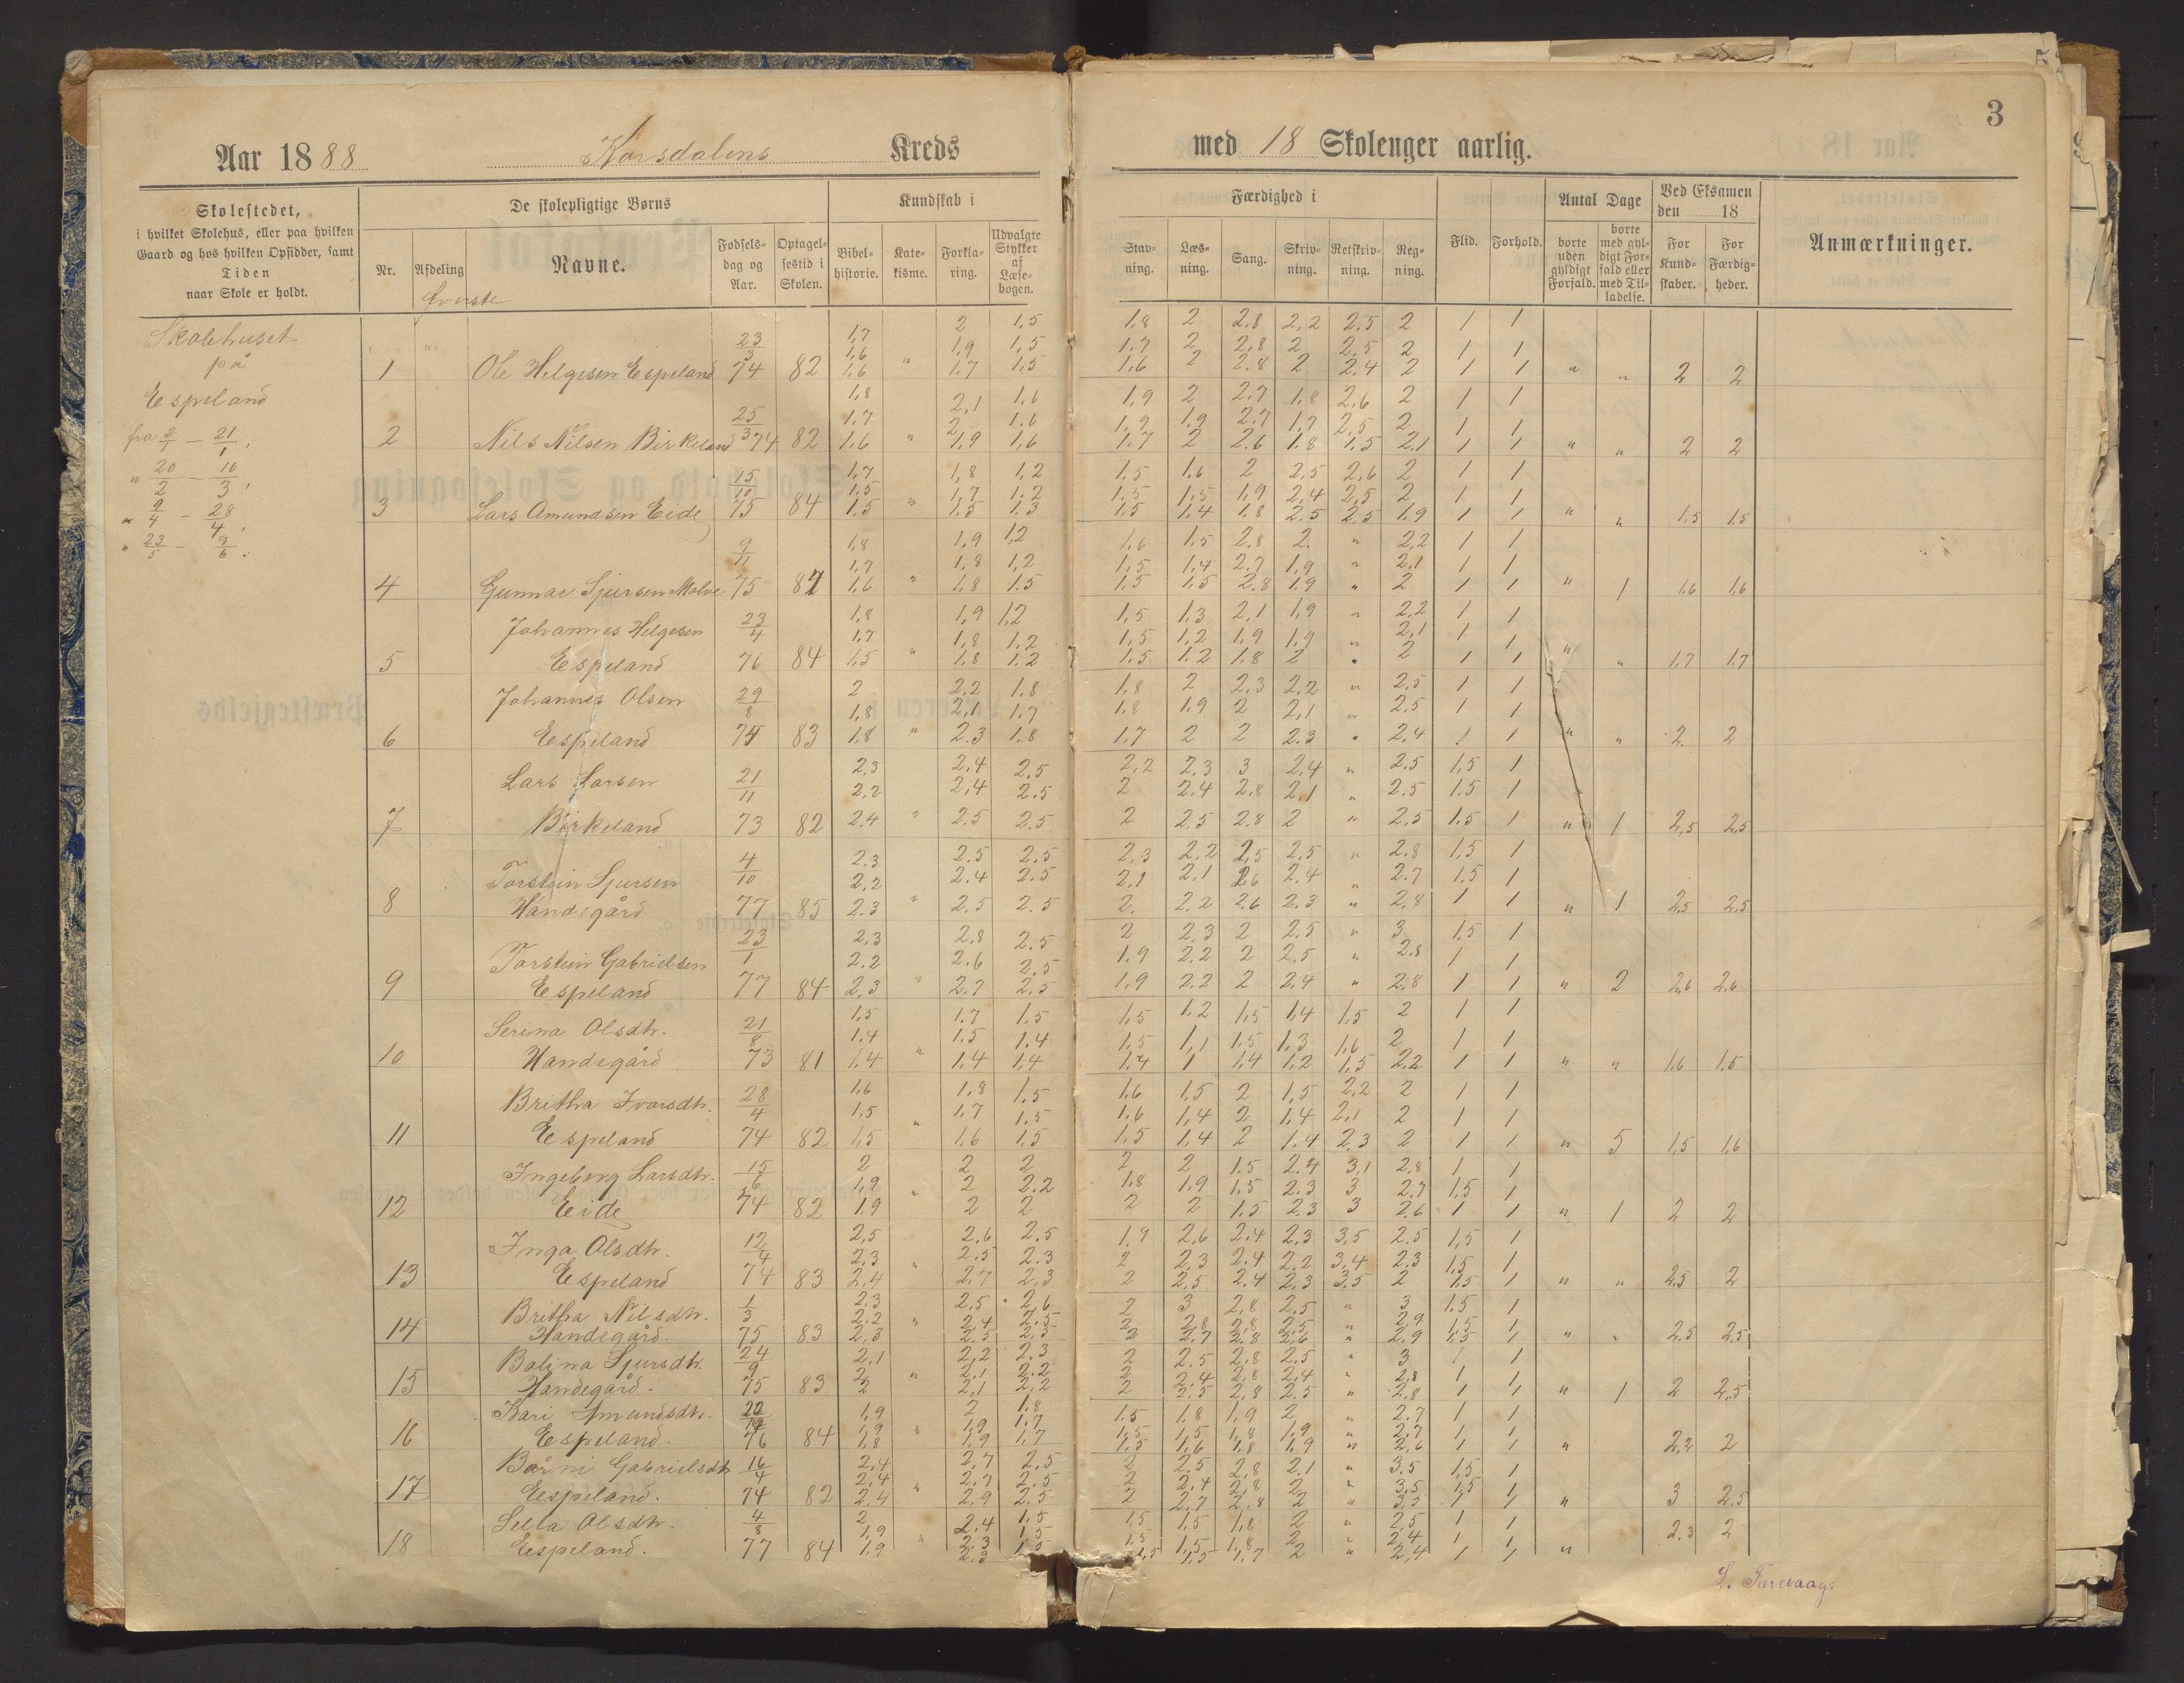 3
Aar 1888 Korsdalens Kreds
med 18 Skolenger aarlig.
Skolestedet,
i hvilket Skolehus, eller paa hvilken
Gaard og hos hvilken Opsidder, samt
Tiden
naar Skole er holdt.
De skolepligtige Børns
Nr. Afdeling Navne. Fødsels-dag og Aar. Optagel-sestid i Skolen.
Kundskab i
Bibel-historie. Kate-kisme. Forkla-ring. Udvalgte Stykker af Læse-bogen.
Færdighed i
Stav-ning. Læs-ning. Sang. Skriv-ning. Retskriv-ning. Reg-ning.
Flid. Forhold.
Antal Dage
borte uden gyldigt Forfald. borte med gyl-digt For-fald eller med Til-ladelse.
Ved Eksamen
den 18
For Kund-skaber. For Færdig-heder.
Anmærkninger.
Skolehuset
på
Espeland
fra 2/1 — 21/1,
" 20/2 — 10/3,
" 9/4 — 28/4,
" 23/5 — 9/6.
1 Ole Helgesen Espeland 23/3 74 82
1,7 2 1,5 1,8 2 2,8 2,2 2,5 2 1 1
1,6 1,9 1,5 1,7 2 2,8 2 2,5 2 1 1
1,6 " 1,7 1,5 1,6 2 2,8 2 2,4 2 1 1 " " 2 2
2 Nils Nilsen Birkeland 25/3 74 82
1,8 2,1 1,6 1,9 2 2,7 1,8 2,6 2 1 1
1,7 2 1,6 1,9 1,9 2,7 1,7 2,5 2 1 1
1,6 " 1,9 1,6 1,7 2 2,6 1,8 1,5 2,1 1 1 " " 2 2
3 Lars Amundsen Eide 15/10 75 84
1,7 1,8 1,2 1,5 1,6 2 2,5 2,6 2 1 1
1,5 1,7 1,2 1,5 1,5 1,9 2,4 2,5 2 1 1
1,5 " 1,5 1,3 1,5 1,4 1,8 2,5 2,5 1,9 1 1 " " 1,5 1,5
4 Gunnar Sjursen Molve 9/11 75
1,8 1,9 1,2 1,6 1,5 2,8 2. " 2,2 1 1
1,7 1,8 1,2 1,5 1,4 2,7 1,9 " 2,1 1 1
1,6 " 1,8 1,5 1,5 1,5 2,8 1,9 " 2 1 1 " 1 1,6 1,6
5 Johannes Helgesen
Espeland 23/4 76 84
1,8 1,9 1,2 1,5 1,3 2,1 1,9 " 2,2 1 1
1,7 1,8 1,2 1,5 1,2 1,9 1,9 " 2,1 1
1,5 " 1,8 1,2 1,5 1,2 1,8 2 " 2 1 1 " " 1,7 1,7
6 Johannes Olsen
Espeland 29/8 83
2 2,2 1,8 1,8 2 2,3 2,2 " 2,5 1 1
1,8 2,1 1,7 1,8 1,9 2 2,1 " 2,5 1 1
1,8 " 2,3 1,8 1,7 2 2 2,3 " 2,4 1 1 " " 2 2
7 Lars Larsen
Birkeland 21/11 73 82
2,3 2,4 2,5 2,2 2,3 3 2,4 " 2,5 1,5 1
2,2 2,4 2,5 2 2,4 2,8 2,1 " 2,5 1,5 1
2,4 " 2,5 2,5 2 2,5 2,8 2 " 2,5 1,5 1 " 1 2,5 2,5
8 Torstein Sjursen
Handegård 4/10 77 85
2,3 2,5 2,5 2,3 2,2 2,5 2,5 " 2,8 1,5 1
2,2 2,4 2,5 2,1 2,1 2,6 2,4 " 2,7 1,5 1
2,3 " 2,5 2,5 2. 2,2 2,6 2,3 " 2,8 1 1 " 1 2,5 2,5
9 Torstein Gabrielsen
Espeland 23/1 77 84
2,3 2,8 2,5 2 2,3 2 2,5 " 3 1,5 1
2,2 2,6 2,5 1,9 2,2 2 2,5 " 2,8 1 1
2,3 " 2,7 2,5 1,9 2,2 2 2,4 " 2,8 1 1 " 2 2,6 2,6
10 Serina Olsdtr.
Handegård 21/8 73 81
1,5 1,7 1,5 1,5 1,2 1,5 1,4 1,5 2 1 1
1,4 1,5 1,4 1,5 1,1 1,5 1,3 1,6 2 1 1
1,4 " 1,4 1,4 1,4 1 1,4 1,2 1,5 2,2 1 1 " " 1,6 1,5
11 Britha Ivarsdtr.
Espeland 28/4 74 82
1,6 1,8 1,5 1,6 1,5 2 1,5 2,2 2 1 1
1,5 1,7 1,5 1,6 1,4 2 1,4 2,1 2 1 1
1,5 " 1,6 1,5 1,5 1,4 2 1,4 2,3 2 1 1 " 5 1,5 1,6
12 Ingeborg Larsdtr.
Eide 15/6 74 82
2 2 2 2 2 1,5 2,4 3,1 2,8 1 1
1,9 2 2,2 1,8 1,9 1,5 2,3 3 2,7 1,5 1
1,9 " 2 2 2 2 1,5 2,3 3 2,6 1 1 " 1 2 2
13 Inga Olsdtr.
Espeland 12/4 74 83
2,5 2,6 2,5 1,9 2,6 2,4 2,3 3,5 2,5 1,5 1
2,3 2,5 2,3 2 2,3 2,4 2,2 3,4 2,3 1,5 1
2,4 " 2,7 2,3 2 2,5 2,4 2,3 3,5 2 1,5 1 " " 2,5 2
14 Britha Nilsdtr.
Handegård. 1/3 75 83
2,3 2,5 2,6 2 3 2,8 2,5 " 3 1,5 1
2,2 2,4 2,5 2 2,8 2,8 2,5 " 2,9 1,5
2,3 " 2,5 2,5 2 2,7 2,8 2,6 " 2,9 1,5 1 " " 2,5 2,5
15 Bolina Sjursdtr.
Handegård. 24/9 75 83
2,1 2,2 2,3 2 2,5 2,8 2,5 " 3 1 1
2 2,1 2,2 2 2,4 2,8 2,4 " 2,8 1 1
2 " 2,1 2,2 2 2,5 2,8 2,5 " 2,8 1 1 " 1 2 2,5
16 Kari Amundsdtr.
Espeland. 76 84
1,9 2 1,8 1,5 1,8 1,9 2 " 2,7 1 1
1,9 1,9 1,7 1,5 1,5 1,8 1,9 " 2,7
1,8 " 1,9 1,7 1,5 1,6 1,8 1,9 " 2,6 1 1 " 2,2 2
17 Gabrielsdtr
Eespeland. 16/4 74 82
2,4 2,7 2,5 2 2,5 2,8 2,1 " 3,5 1,5 1
2,4 2,7 2,5 2 2,4 2,8 2 " 3,5 1,5
2,4 " 2,9 2,5 2 2,7 2,8 2 " 3,5 1 1 " 3 2,5
18 Sella Olsdtr.
Eespeland. 4/8 77 84
2 2,4 1,5 1,5 1,5 1,8 2 " 2,5 1 1
1,9 2,3 1,5 1,5 1,5 1,8 2 " 2,4 1 1
1,9 " 2,3 1,5 1,5 1,5 1,7 2 " 2,4 1 1 " 2,3 2